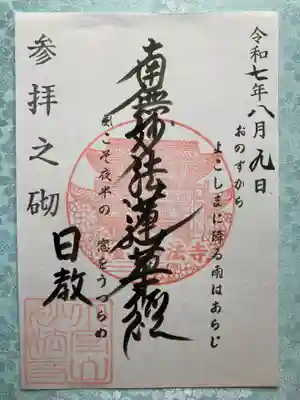 令和七年八月九日
おのずから
よこしまに降る雨はあらじ
南無妙法蓮華経
風こそ夜半の 窓をうつらめ
参拝之砌
日教
法寺